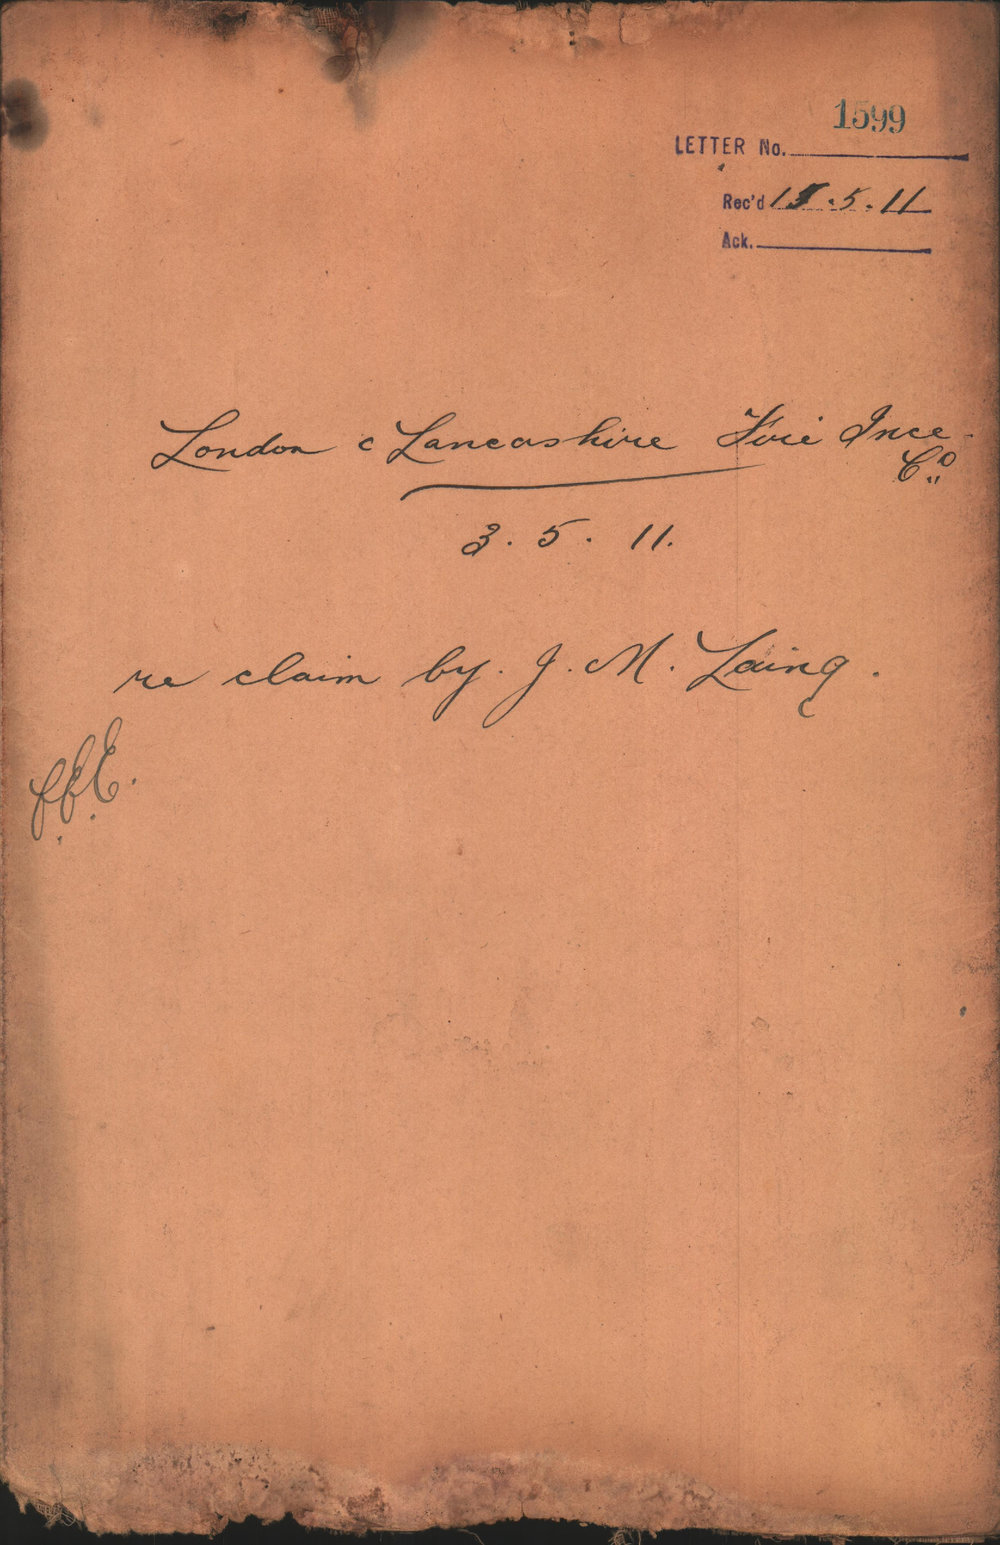 1599
LETTER No.
Rec'd .5.11
Ack.
London & Lancashire Fire Ince.
Co.
3. 5. 11.
re claim by. J. M. Laing.